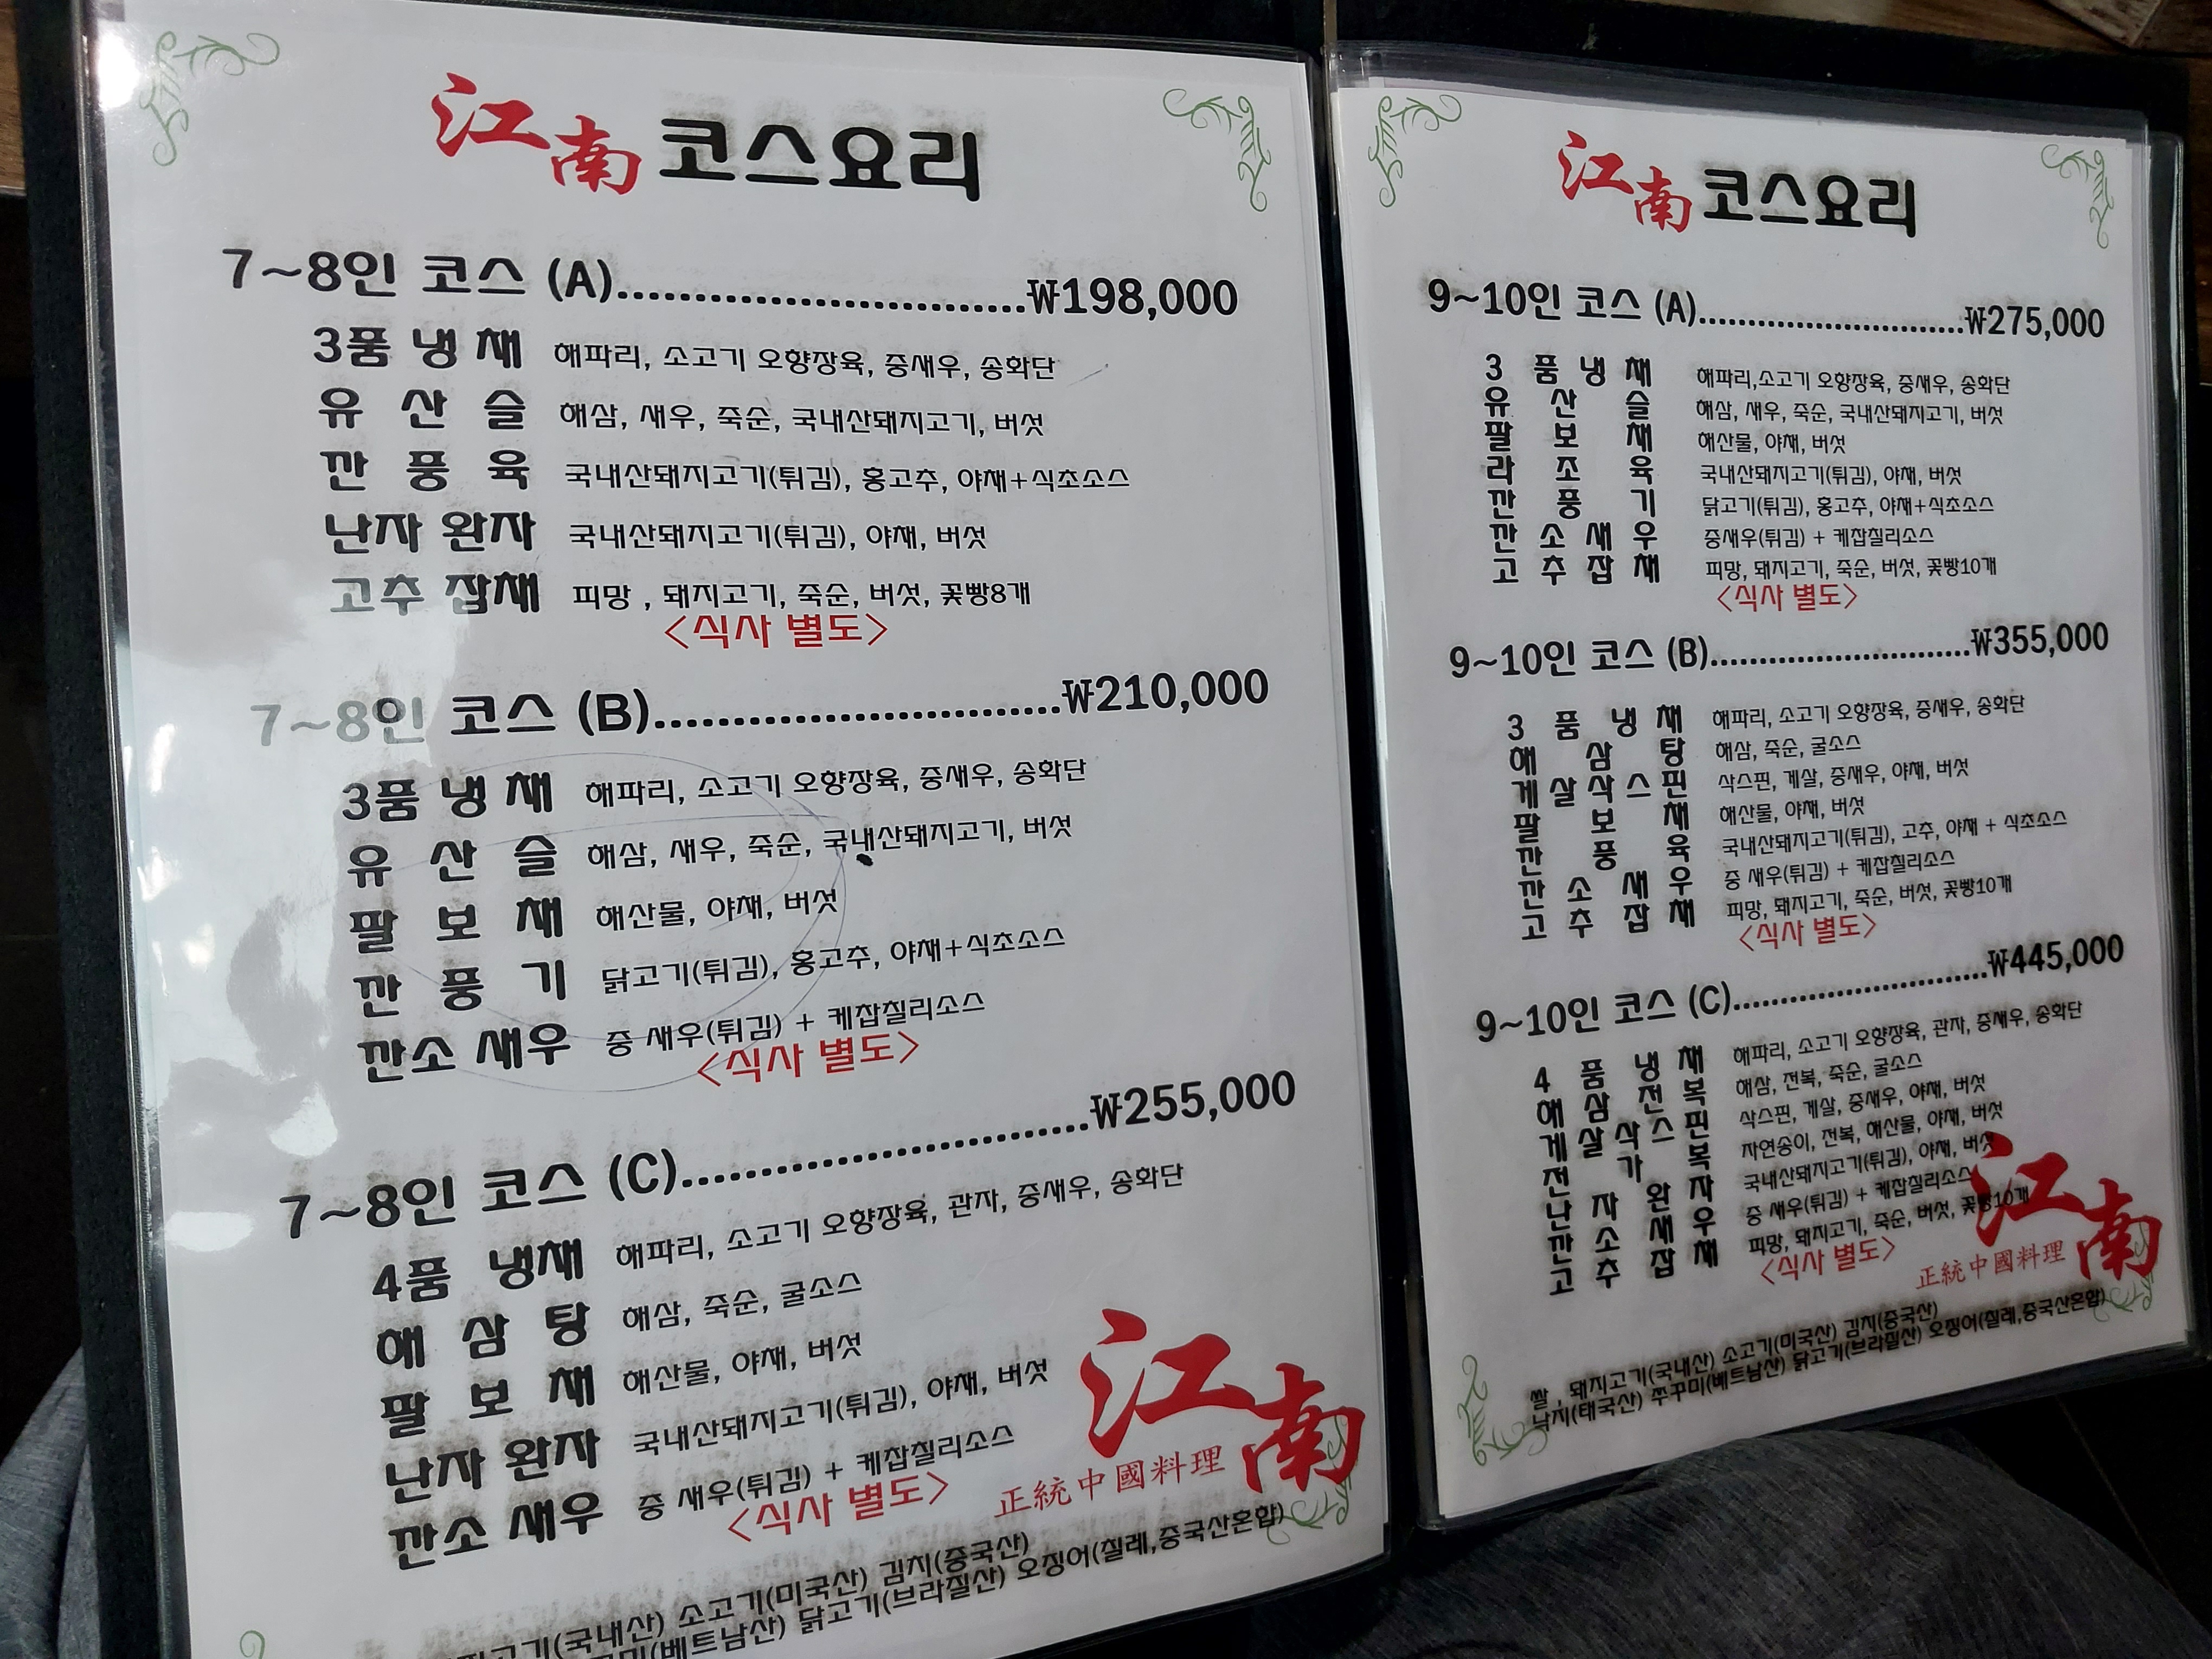 江南 코스요리
7~8인 코스 (A)..............................₩198,000
3품 냉 채 해파리, 소고기 오향장육, 중새우, 송화단
유 산 슬 해삼, 새우, 죽순, 국내산돼지고기, 버섯
깐 풍 육 국내산돼지고기(튀김), 홍고추, 야채+식초소스
난자 완자 국내산돼지고기(튀김), 야채, 버섯
고추 잡채 피망 , 돼지고기, 죽순, 버섯, 꽃빵8개
<식사 별도>
7~8인 코스 (B)..............................₩210,000
3품 냉 채 해파리, 소고기 오향장육, 중새우, 송화단
유 산 슬 해삼, 새우, 죽순, 국내산돼지고기, 버섯
팔 보 채 해산물, 야채, 버섯
깐 풍 기 닭고기(튀김), 홍고추, 야채+식초소스
깐소 새우 중 새우(튀김) + 케찹칠리소스
<식사 별도>
7~8인 코스 (C)..............................₩255,000
4품 냉채 해파리, 소고기 오향장육, 관자, 중새우, 송화단
해 삼 탕 해삼, 죽순, 굴소스
팔 보 채 해산물, 야채, 버섯
난자 완자 국내산돼지고기(튀김), 야채, 버섯
깐소 새우 중 새우(튀김) + 케찹칠리소스
<식사 별도>
江南
正統中國料理
돼지고기(국내산) 소고기(미국산) 김치(중국산)
쭈꾸미(베트남산) 닭고기(브라질산) 오징어(칠레,중국산혼합)
江南 코스요리
9~10인 코스 (A)..............................₩275,000
3 품 냉 채 해파리,소고기 오향장육, 중새우, 송화단
유 산 슬 해삼, 새우, 죽순, 국내산돼지고기, 버섯
팔 보 채 해산물, 야채, 버섯
라 조 육 국내산돼지고기(튀김), 야채, 버섯
깐 풍 기 닭고기(튀김), 홍고추, 야채+식초소스
깐 소 새 우 중새우(튀김) + 케찹칠리소스
고 추 잡 채 피망, 돼지고기, 죽순, 버섯, 꽃빵10개
<식사 별도>
9~10인 코스 (B)..............................₩355,000
3 품 냉 채 해파리, 소고기 오향장육, 중새우, 송화단
해 삼 탕 해삼, 죽순, 굴소스
게 살 삭 스 핀 삭스핀, 게살, 중새우, 야채, 버섯
팔 보 채 해산물, 야채, 버섯
깐 풍 육 국내산돼지고기(튀김), 고추, 야채 + 식초소스
깐 소 새 우 중 새우(튀김) + 케찹칠리소스
고 추 잡 채 피망, 돼지고기, 죽순, 버섯, 꽃빵10개
<식사 별도>
9~10인 코스 (C)..............................₩445,000
4 품 냉 채 해파리, 소고기 오향장육, 관자, 중새우, 송화단
해 삼 전 복 해삼, 전복, 죽순, 굴소스
게 살 삭 스 핀 삭스핀, 게살, 중새우, 야채, 버섯
전 가 복 자연송이, 전복, 해산물, 야채, 버섯
난 자 완 자 국내산돼지고기(튀김), 야채, 버섯
깐 소 새 우 중 새우(튀김) + 케찹칠리소스
고 추 잡 채 피망, 돼지고기, 죽순, 버섯, 꽃빵10개
<식사 별도>
江南
正統中國料理
쌀 , 돼지고기(국내산) 소고기(미국산) 김치(중국산)
낙지(태국산) 쭈꾸미(베트남산) 닭고기(브라질산) 오징어(칠레,중국산혼합)